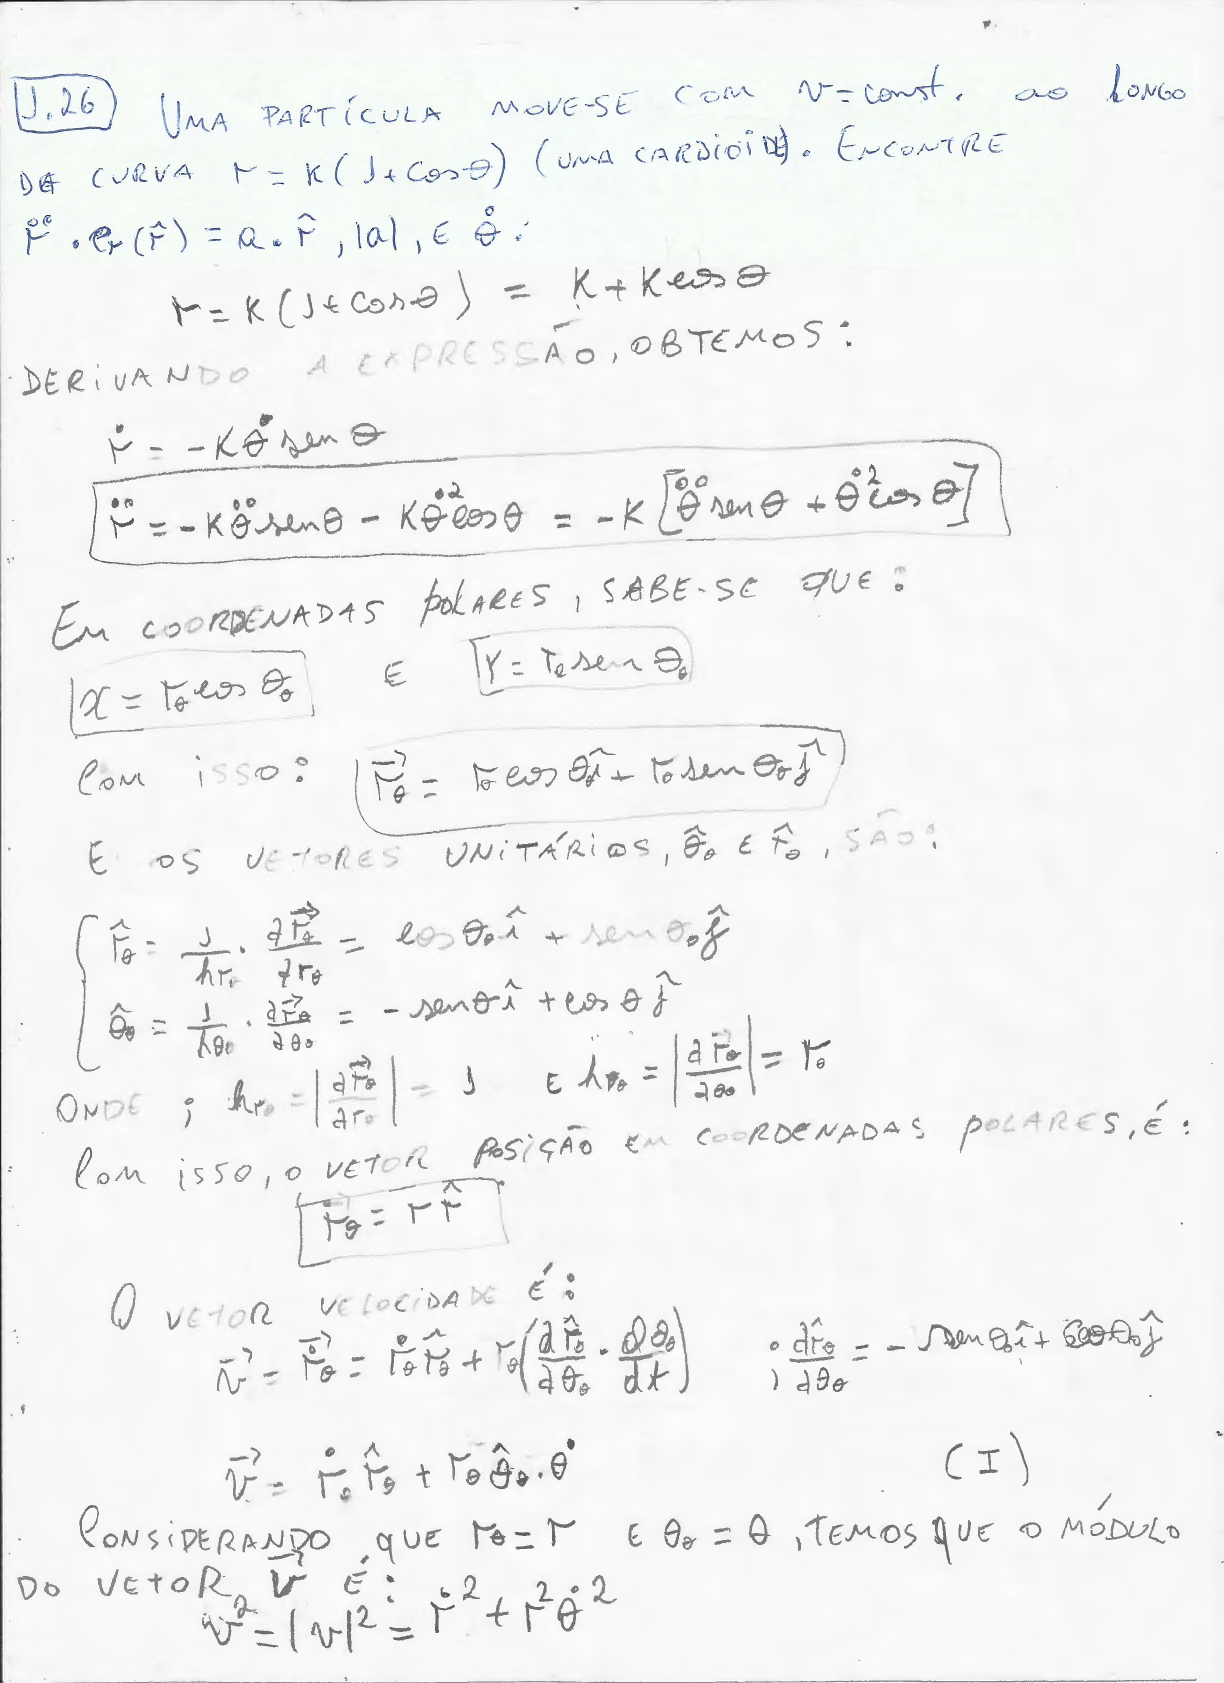 1.26 UMA PARTÍCULA MOVE-SE COM v=const. ao LONGO
DA CURVA r = K(1+cosθ) (UMA CARDIOIDE). ENCONTRE
r̈ . e_r(r̂) = a . r̂ , |a| , E θ̇ :
r = K(1+cosθ) = K + K cosθ
DERIVANDO A EXPRESSÃO, OBTEMOS:
ṙ = -K θ̇ sen θ
r̈ = -K θ̈ sen θ - K θ̇² cos θ = -K [θ̈ sen θ + θ̇² cos θ]
EM COORDENADAS POLARES, SABE-SE QUE:
x = r₀ cos θ₀ E Y = r₀ sen θ₀
COM ISSO: r⃗₀ = r₀ cos θ₀ î + r₀ sen θ₀ ĵ
E OS VETORES UNITÁRIOS, θ̂₀ E r̂₀, SÃO:
r̂₀ = 1/hr₀ . ∂r⃗₀/∂r₀ = cos θ₀ î + sen θ₀ ĵ
θ̂₀ = 1/hθ₀ . ∂r⃗₀/∂θ₀ = - sen θ î + cos θ ĵ
ONDE ; hr₀ = |∂r⃗₀/∂r₀| = 1 E hr₀ = |∂r⃗₀/∂θ₀| = r₀
COM ISSO, O VETOR POSIÇÃO EM COORDENADAS POLARES, É:
r⃗₀ = r r̂
O VETOR VELOCIDADE É:
v⃗ = r⃗̇₀ = ṙ₀ r̂₀ + r₀(∂r̂₀/∂θ₀ . dθ₀/dt) ; ∂r̂₀/∂θ₀ = - sen θ₀ î + cos θ₀ ĵ
v⃗ = ṙ₀ r̂₀ + r₀ θ̂₀ . θ̇ (I)
CONSIDERANDO QUE r₀ = r E θ₀ = θ, TEMOS QUE O MÓDULO
DO VETOR v⃗ É:
v² = |v|² = ṙ² + r² θ̇²